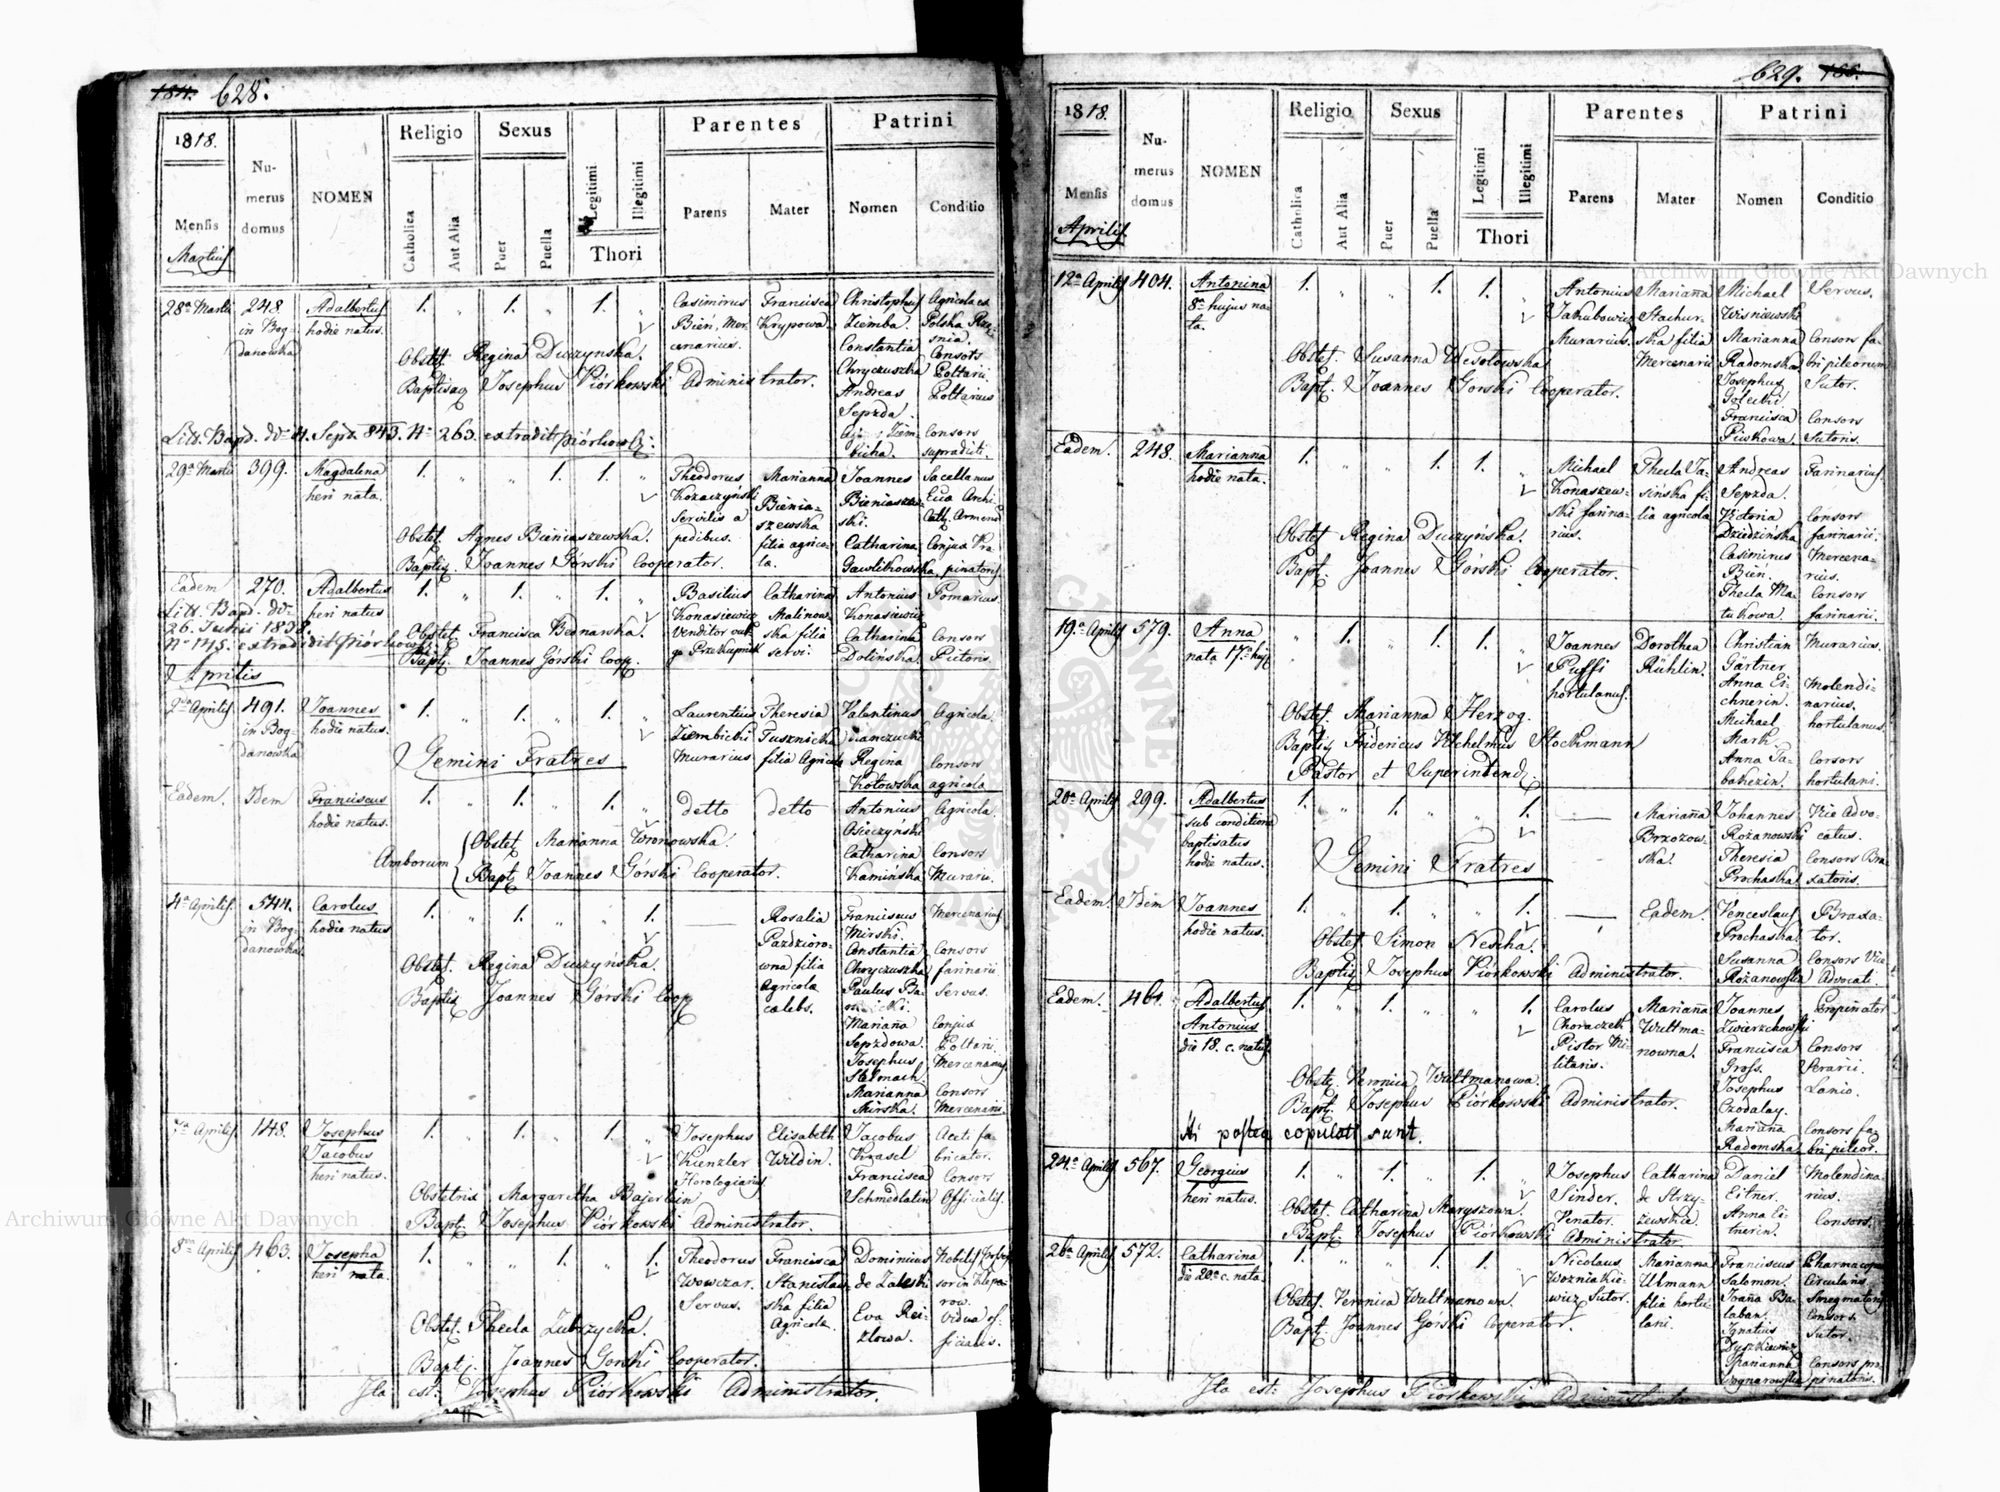 184. 628.
1818.
Numerus domus
NOMEN
Religio
Sexus
Legitimi
Illegitimi
Thori
Parentes
Patrini
Mensis
Catholica
Aut Alia
Puer
Puella
Parens
Mater
Nomen
Conditio
Martius
28a Martii 248. in Bogdanowka
Adalbertus
hodie natus.
1. " 1. " 1. "
Casimirus Bień, Mercenarius.
Francisca Krypowa
Christophus Ziemba.
Agricola ex Polska
Constantia Chryczuszka
Consors Zoltarii.
Andreas Sepzda.
Zoltarius
consors supradicti.
Obstet. Regina Duczynska.
Baptisaz Josephus Piórkowski Administrator.
Litt. Bapt. dd. 4. Sept. 843. No 263. extradit Piórkowski
29a Martii 399.
Magdalena
heri nata.
1. " " 1. 1. "
Theodorus Kozaczyński Servilis a pedibus.
Marianna Bieniaszewska filia agricola.
Joannes Bieniaszewski.
Catharina Gawlikowska
Conjux Propinatoris
Obstet. Agnes Bieniaszewska.
Baptiz. Joannes Górski Cooperator.
Eadem. 270.
Adalbertus
heri natus
1. " 1. " 1. "
Basilius Konasiewicz Venditor
Catharina Malinowska filia servi.
Antonius Konasiewicz
Pomarius.
Catharina Dolińska.
Consors Pictoris.
Litt. Bapt. dd.
26. Junii 1838.
No 145. extradit Piórkowski
Obstet. Francisca Bednarska.
Bapt. Joannes Górski Coop.
Aprilis
2da Aprilis 491. in Bogdanowka
Joannes
hodie natus.
1. " 1. " 1. "
Laurentius Ziembicki Murarius
Theresia Tusznicka filia Agricola
Valentinus
Agricola.
Regina Kotowska
Consors agricola
Gemini Fratres
Eadem. Idem
Franciscus
hodie natus.
1. " 1. " 1. "
detto detto
Antonius Osieczyński
Agricola.
Catharina Kamińska
Consors Murarii.
Amborum
Obstet. Marianna Wronowska.
Bapt. Joannes Górski Cooperator.
4a Aprilis. 544. in Bogdanowka
Carolus
hodie natus
1. " 1. " " 1.
Rosalia Pazdziorowna filia Agricola celebs.
Franciscus Mirski.
Mercenarius
Constantia Chryczuszka
Consors farinarii
Paulus
Servus.
Mariana Sepzdowa.
Conjux Zoltarii.
Josephus Stelmach
Mercenarius
Marianna Mirska.
Consors Mercenarii.
Obstet. Regina Duczynska.
Baptiz. Joannes Górski Coop
7a Aprilis. 148.
Josephus
Jacobus
heri natus.
1. " 1. " 1. "
Josephus Kienzler Horologiarius.
Elisabeth Wildin.
Jacobus Krasel
Aceti fabricator.
Francisca Schmedlatin
Consors Officialis.
Obstetrix Margaretha Bajerlein
Bapt. Josephus Piórkowski Administrator.
8va Aprilis 463.
Josepha
heri nata.
1. " " 1. " 1.
Theodorus Wowczar. Servus.
Francisca Stanislawska filia Agricola.
Dominius de Zaleski
Nobilis
Eva Reizlowa.
Vidua officialis.
Obstet. Thecla Zubrzycka.
Bapt. Joannes Gorski Cooperator.
Ita est: Josephus Piórkowski Administrator.
629. 185.
1818.
Numerus domus
NOMEN
Religio
Sexus
Legitimi
Illegitimi
Thori
Parentes
Patrini
Mensis
Catholica
Aut Alia
Puer
Puella
Parens
Mater
Nomen
Conditio
Aprilis.
12a Aprilis 404.
Antonina
8a hujus nata.
1. " " 1. 1. "
Antonius Jakubowicz Murarius.
Mariana Stachurska filia Mercenarii
Michael Wisniewski
Servus.
Marianna Radomska
Consors fabri pileorum
Josephus Golecki
Sutor.
Francisca Piskowa.
Consors Sutoris.
Obstet. Susanna Wesołowska
Bapt. Joannes Gorski Cooperator.
Eadem. 248.
Marianna
hodie nata.
1. " " 1. 1. "
Michael Konaszewski farinarius.
Thecla Jasińska filia agricola
Andreas Sepzda.
Farinarius.
Victoria Dziedzińska
Consors farinarii.
Casimirus Bień.
Mercenarius.
Thecla Matukowa.
Consors farinarii.
Obstet. Regina Duczyńska.
Bapt. Joannes Górski Cooperator.
19a Aprilis 579.
Anna
nata 17a huj.
" 1. " 1. 1. "
Joannes Puffi hortulanus.
Dorothea Rühlin.
Christian Gärtner
Murarius.
Anna Eichnerin.
Molendinarius.
Michael Marth.
hortulanus.
Anna
Corsors hortulani.
Obstet. Marianna Herzog.
Baptiz. Fridericus Wilchelmus Stockmann
Pastor et Superintend.
20a Aprilis 299.
Adalbertus
sub conditione
baptisatus
hodie natus.
1. " 1. " " 1.
Mariana Brzozowska.
Johannes Rożanowski
Vice Advocatus.
Theresia Prochaska
Consors Braxatoris.
Gemini Fratres
Eadem. Idem
Joannes
hodie natus.
1. " 1. " " 1.
Eadem.
Venceslaus Prochaska.
Braxator.
Susanna Rożanowska
Consors Vice Advocati.
Obstet. Simon Nescha.
Baptiz. Josephus Piórkowski Administrator.
Eadem. 461.
Adalbertus
Antonius
die 18. c. natus
1. " 1. " " 1.
Carolus Choraczek Pistor Militaris.
Mariana Wultmanowna.
Joannes Zwierzchowski
Propinator
Francisca Gross.
Consors Serarii.
Josephus Czodalay.
Lanio.
Mariana Radomska
Consors fabri pileor.
Obstet. Veronica Wultmanowa.
Bapt. Josephus Piórkowski Administrator.
Hi postea copulati sunt.
24a Aprilis 567.
Georgius
heri natus.
1. " 1. " 1. "
Josephus Sinder. Venator.
Catharina de Strzyżewskia.
Daniel Eitner.
Molendinarius.
Anna Eitnerin.
Consors.
Obstet. Catharina Maryszowa.
Bapt. Josephus Piórkowski Administrator
26a Aprilis 572.
Catharina
die 20a c. nata.
1. " " 1. 1. "
Nicolaus Wozniakiewicz Sutor.
Marianna Ulmann filia hortulani.
Franciscus Salomon.
Pharmacopa Circularis
Joana Balaban.
Smegmatoris Consors
Ignatius Dyszkiewicz
Sutor.
Marianna Bognarowska
Consors propinatoris.
Obstet. Veronica Wultmanowa.
Bapt. Joannes Gorski Cooperator.
Ita est: Josephus Piórkowski Administrator
Archiwum Główne Akt Dawnych
Archiwum Główne Akt Dawnych